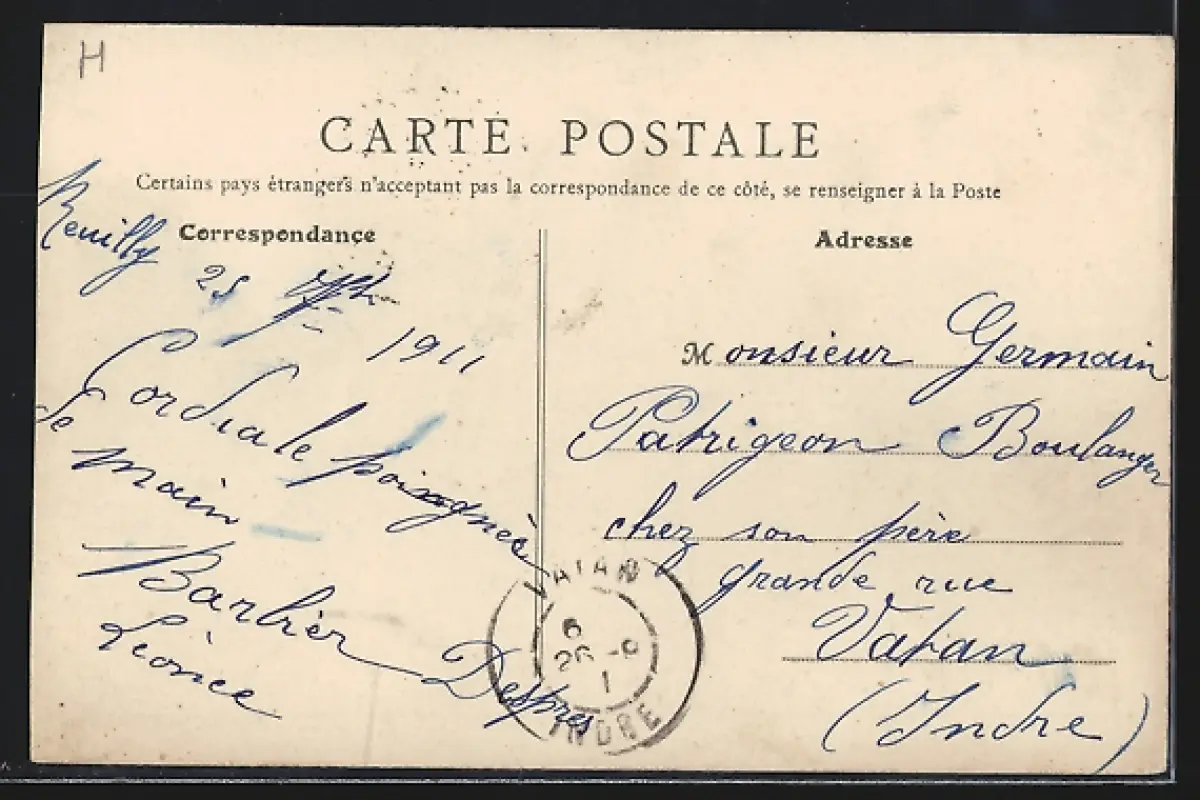 H
CARTE POSTALE
Certains pays étrangers n'acceptant pas la correspondance de ce côté, se renseigner à la Poste
Correspondance
Reuilly
25 7bre
1911
Cordiale poingnèe
de main
Barbier Despres
Léonce
Adresse
Monsieur Germain
Patrigeon Boulanger
chez son père
grande rue
Vatan
(Indre)
VATAN
6
26 - 9
1
INDRE